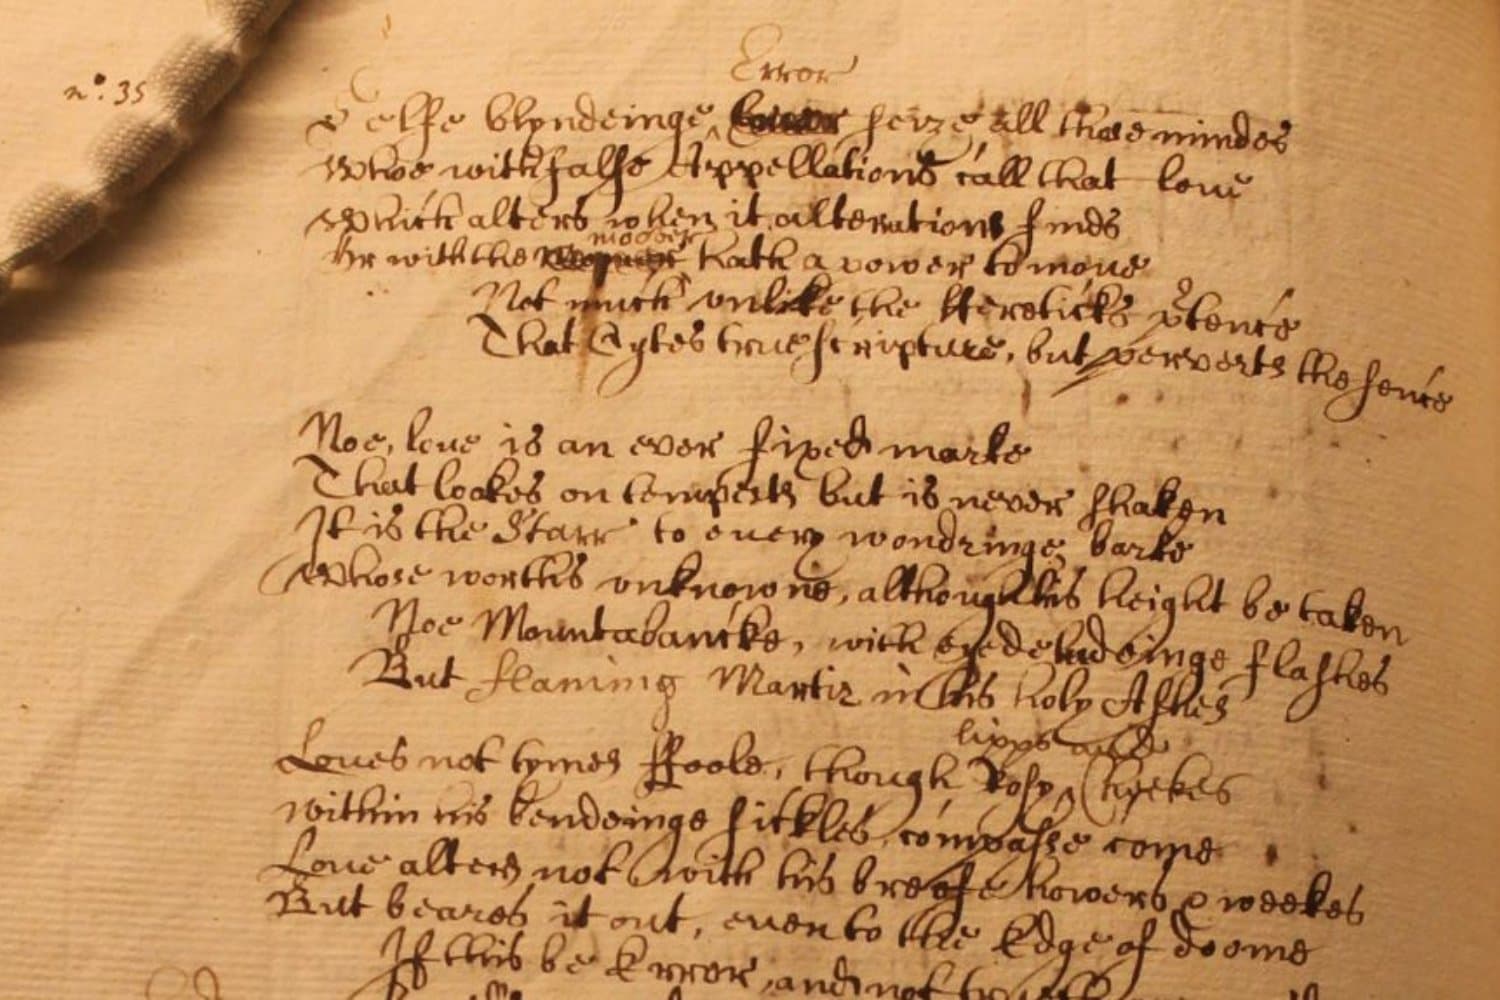 Error
nº: 35
Selfe blyndeinge seize all those mindes
Whoe with false Appellations call that love
Which alters when it alterations finds
mover
Or with the hath a power to move
Not much unlike the Hereticks ptence
That Cytes true scripture, but perverts the sence
Noe, love is an ever fixed marke
That lookes on tempests but is never shaken
It is the Starr to every wondringe barke
Whose worth's unknowne, although his height be taken
Noe Mountabancke, with eyedeludeinge flashes
But flaming Martir in his holy Ashes
lipps and
Loves not tymes ffoole, though Rosy Cheekes
within his bendeinge sickles compasse come
Love alters not with his breefe howers & weekes
But beares it out, even to the Edge of doome
If this be Error, and not